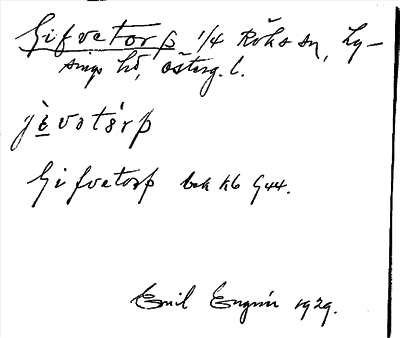 Gifvetorp 1/4 Röks sn, Ly-
sings hd, Österg. l.
jèvetórp
Gifvetorp bek kb 944.
Emil Engvin 1929.